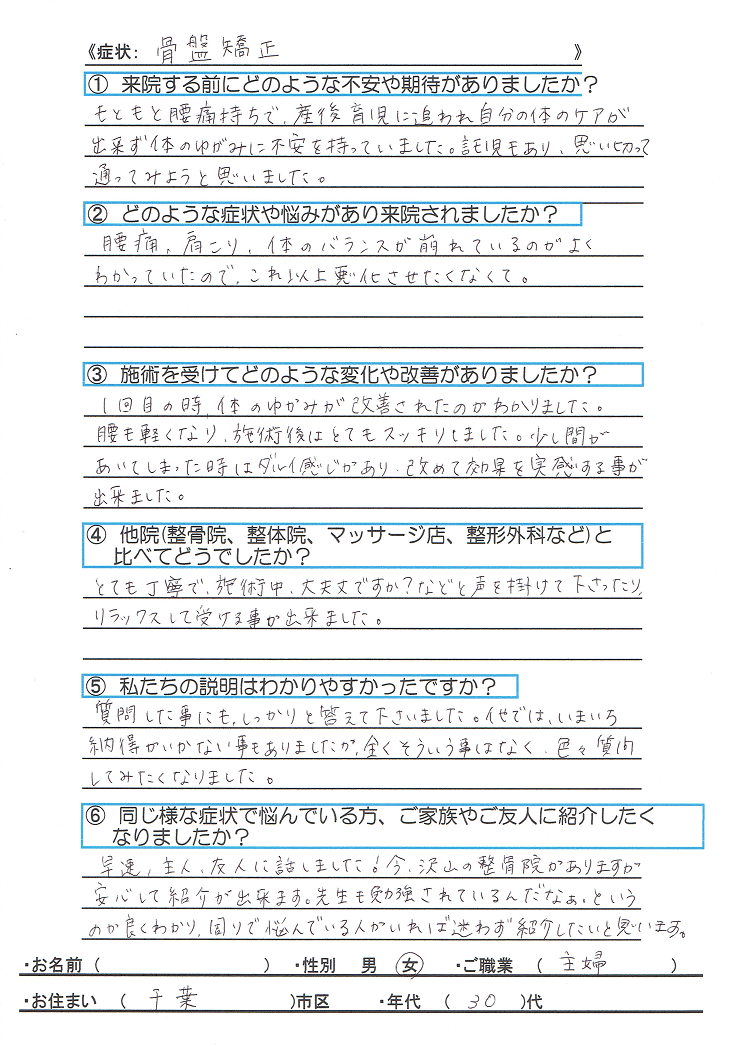 《症状: 骨盤矯正 》
① 来院する前にどのような不安や期待がありましたか？
もともと腰痛持ちで、産後育児に追われ自分の体のケアが
出来ず体のゆがみに不安を持っていました。託児もあり、思い切って
通ってみようと思いました。
② どのような症状や悩みがあり来院されましたか？
腰痛、肩こり、体のバランスが崩れているのがよく
わかっていたので、これ以上悪化させたくなくて。
③ 施術を受けてどのような変化や改善がありましたか？
1回目の時、体のゆがみが改善されたのがわかりました。
腰も軽くなり、施術後はとてもスッキリしました。少し間が
あいてしまった時はダルイ感じがあり、改めて効果を実感する事が
出来ました。
④ 他院(整骨院、整体院、マッサージ店、整形外科など)と
比べてどうでしたか？
とても丁寧で、施術中、大丈夫ですか？などと声を掛けて下さったり、
リラックスして受ける事が出来ました。
⑤ 私たちの説明はわかりやすかったですか？
質問した事にも、しっかりと答えて下さいました。他では、いまいち
納得がいかない事もありましたが、全くそういう事はなく、色々質問
してみたくなりました。
⑥ 同じ様な症状で悩んでいる方、ご家族やご友人に紹介したく
なりましたか？
早速、主人、友人に話しました！今、沢山の整骨院がありますが
安心して紹介が出来ます。先生も勉強されているんだなぁ、という
のが良くわかり、周りで悩んでいる人がいれば迷わず紹介したいと思います。
・お名前（ ） ・性別 男 女 ・ご職業（ 主婦 ）
・お住まい（ 千葉 ）市区 ・年代（ 30 ）代